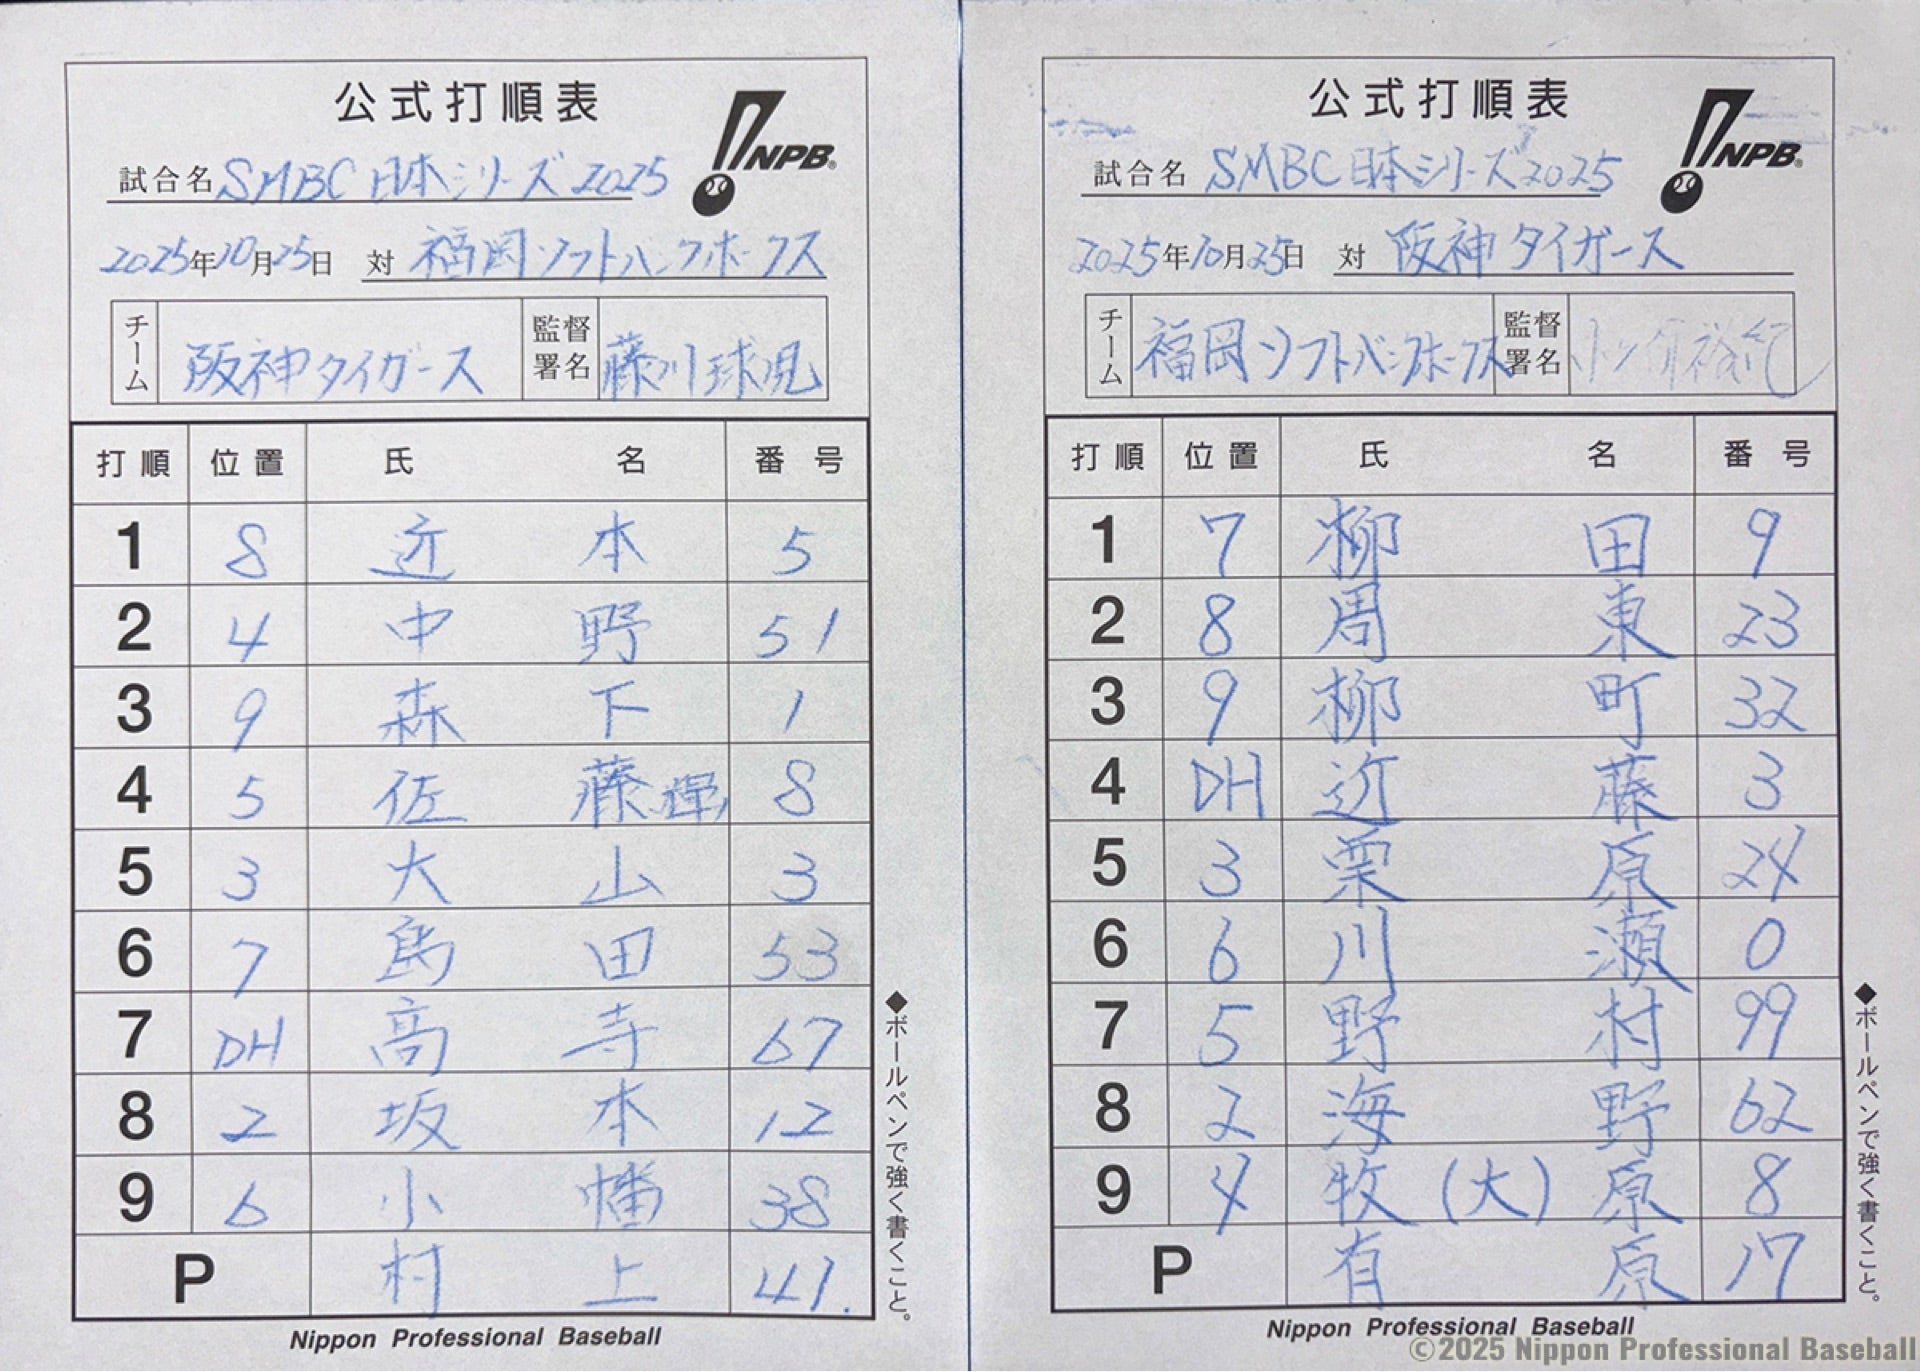 公式打順表
NPB
試合名 SMBC日本シリーズ2025
2025年10月25日 対 福岡ソフトバンクホークス
チーム 阪神タイガース 監督署名 藤川球児
打順 位置 氏名 番号
1 8 近本 5
2 4 中野 51
3 9 森下 1
4 5 佐藤輝 8
5 3 大山 3
6 7 島田 53
7 DH 高寺 67
8 2 坂本 12
9 6 小幡 38
P 村上 41.
◆ボールペンで強く書くこと。
Nippon Professional Baseball
公式打順表
NPB
試合名 SMBC日本シリーズ2025
2025年10月25日 対 阪神タイガース
チーム 福岡ソフトバンクホークス 監督署名 小久保裕紀
打順 位置 氏名 番号
1 7 柳田 9
2 8 周東 23
3 9 柳町 32
4 DH 近藤 3
5 3 栗原 24
6 6 川瀬 0
7 5 野村 99
8 2 海野 62
9 4 牧(大)原 8
P 有原 17
◆ボールペンで強く書くこと。
Nippon Professional Baseball
©2025 Nippon Professional Baseball